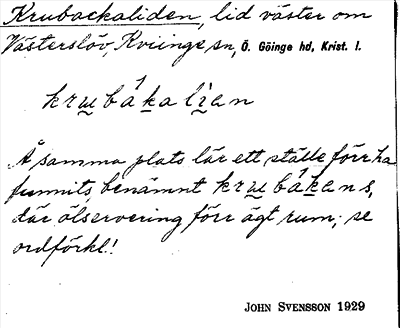 Krubackaliden, lid väster om
Västerslöv, Kviinge sn, Ö. Göinge hd, Krist. l.
krɯbákalìan
Å samma plats lär ett ställe förr ha
funnits, benämnt krɯbákans,
där ölservering förr ägt rum; se
ordförkl.!
JOHN SVENSSON 1929